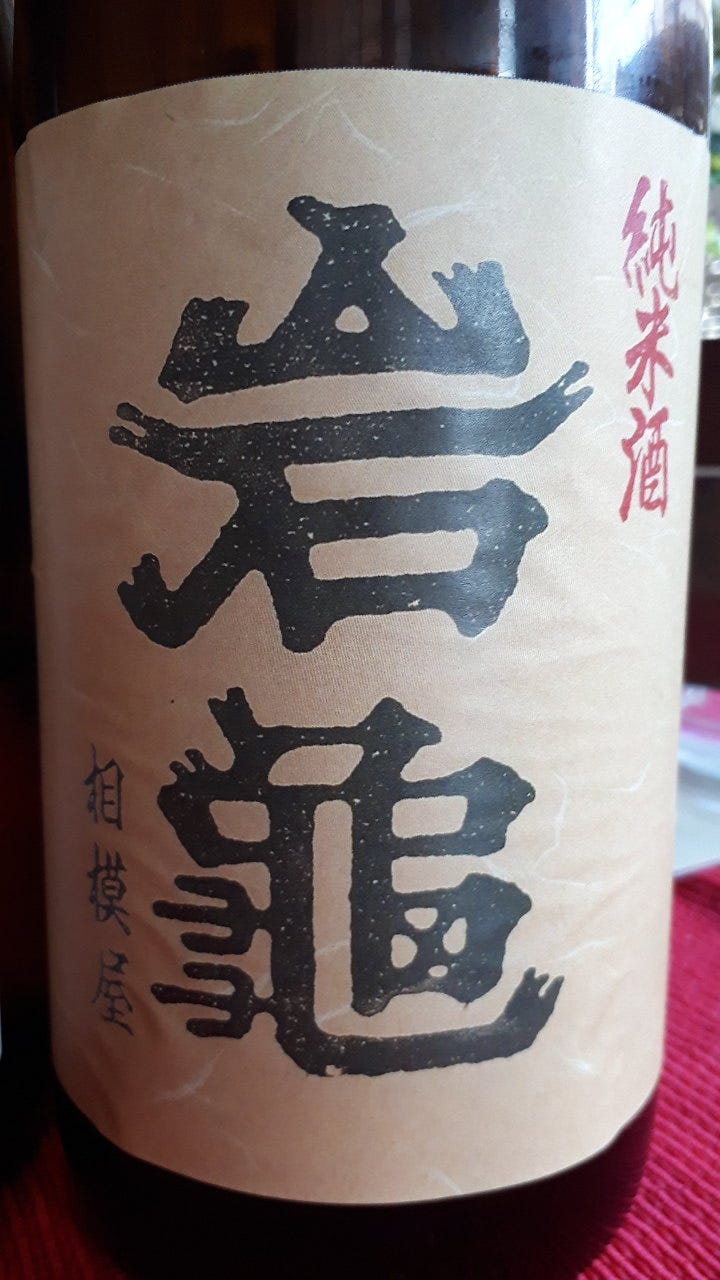 純米酒
岩亀
相模屋